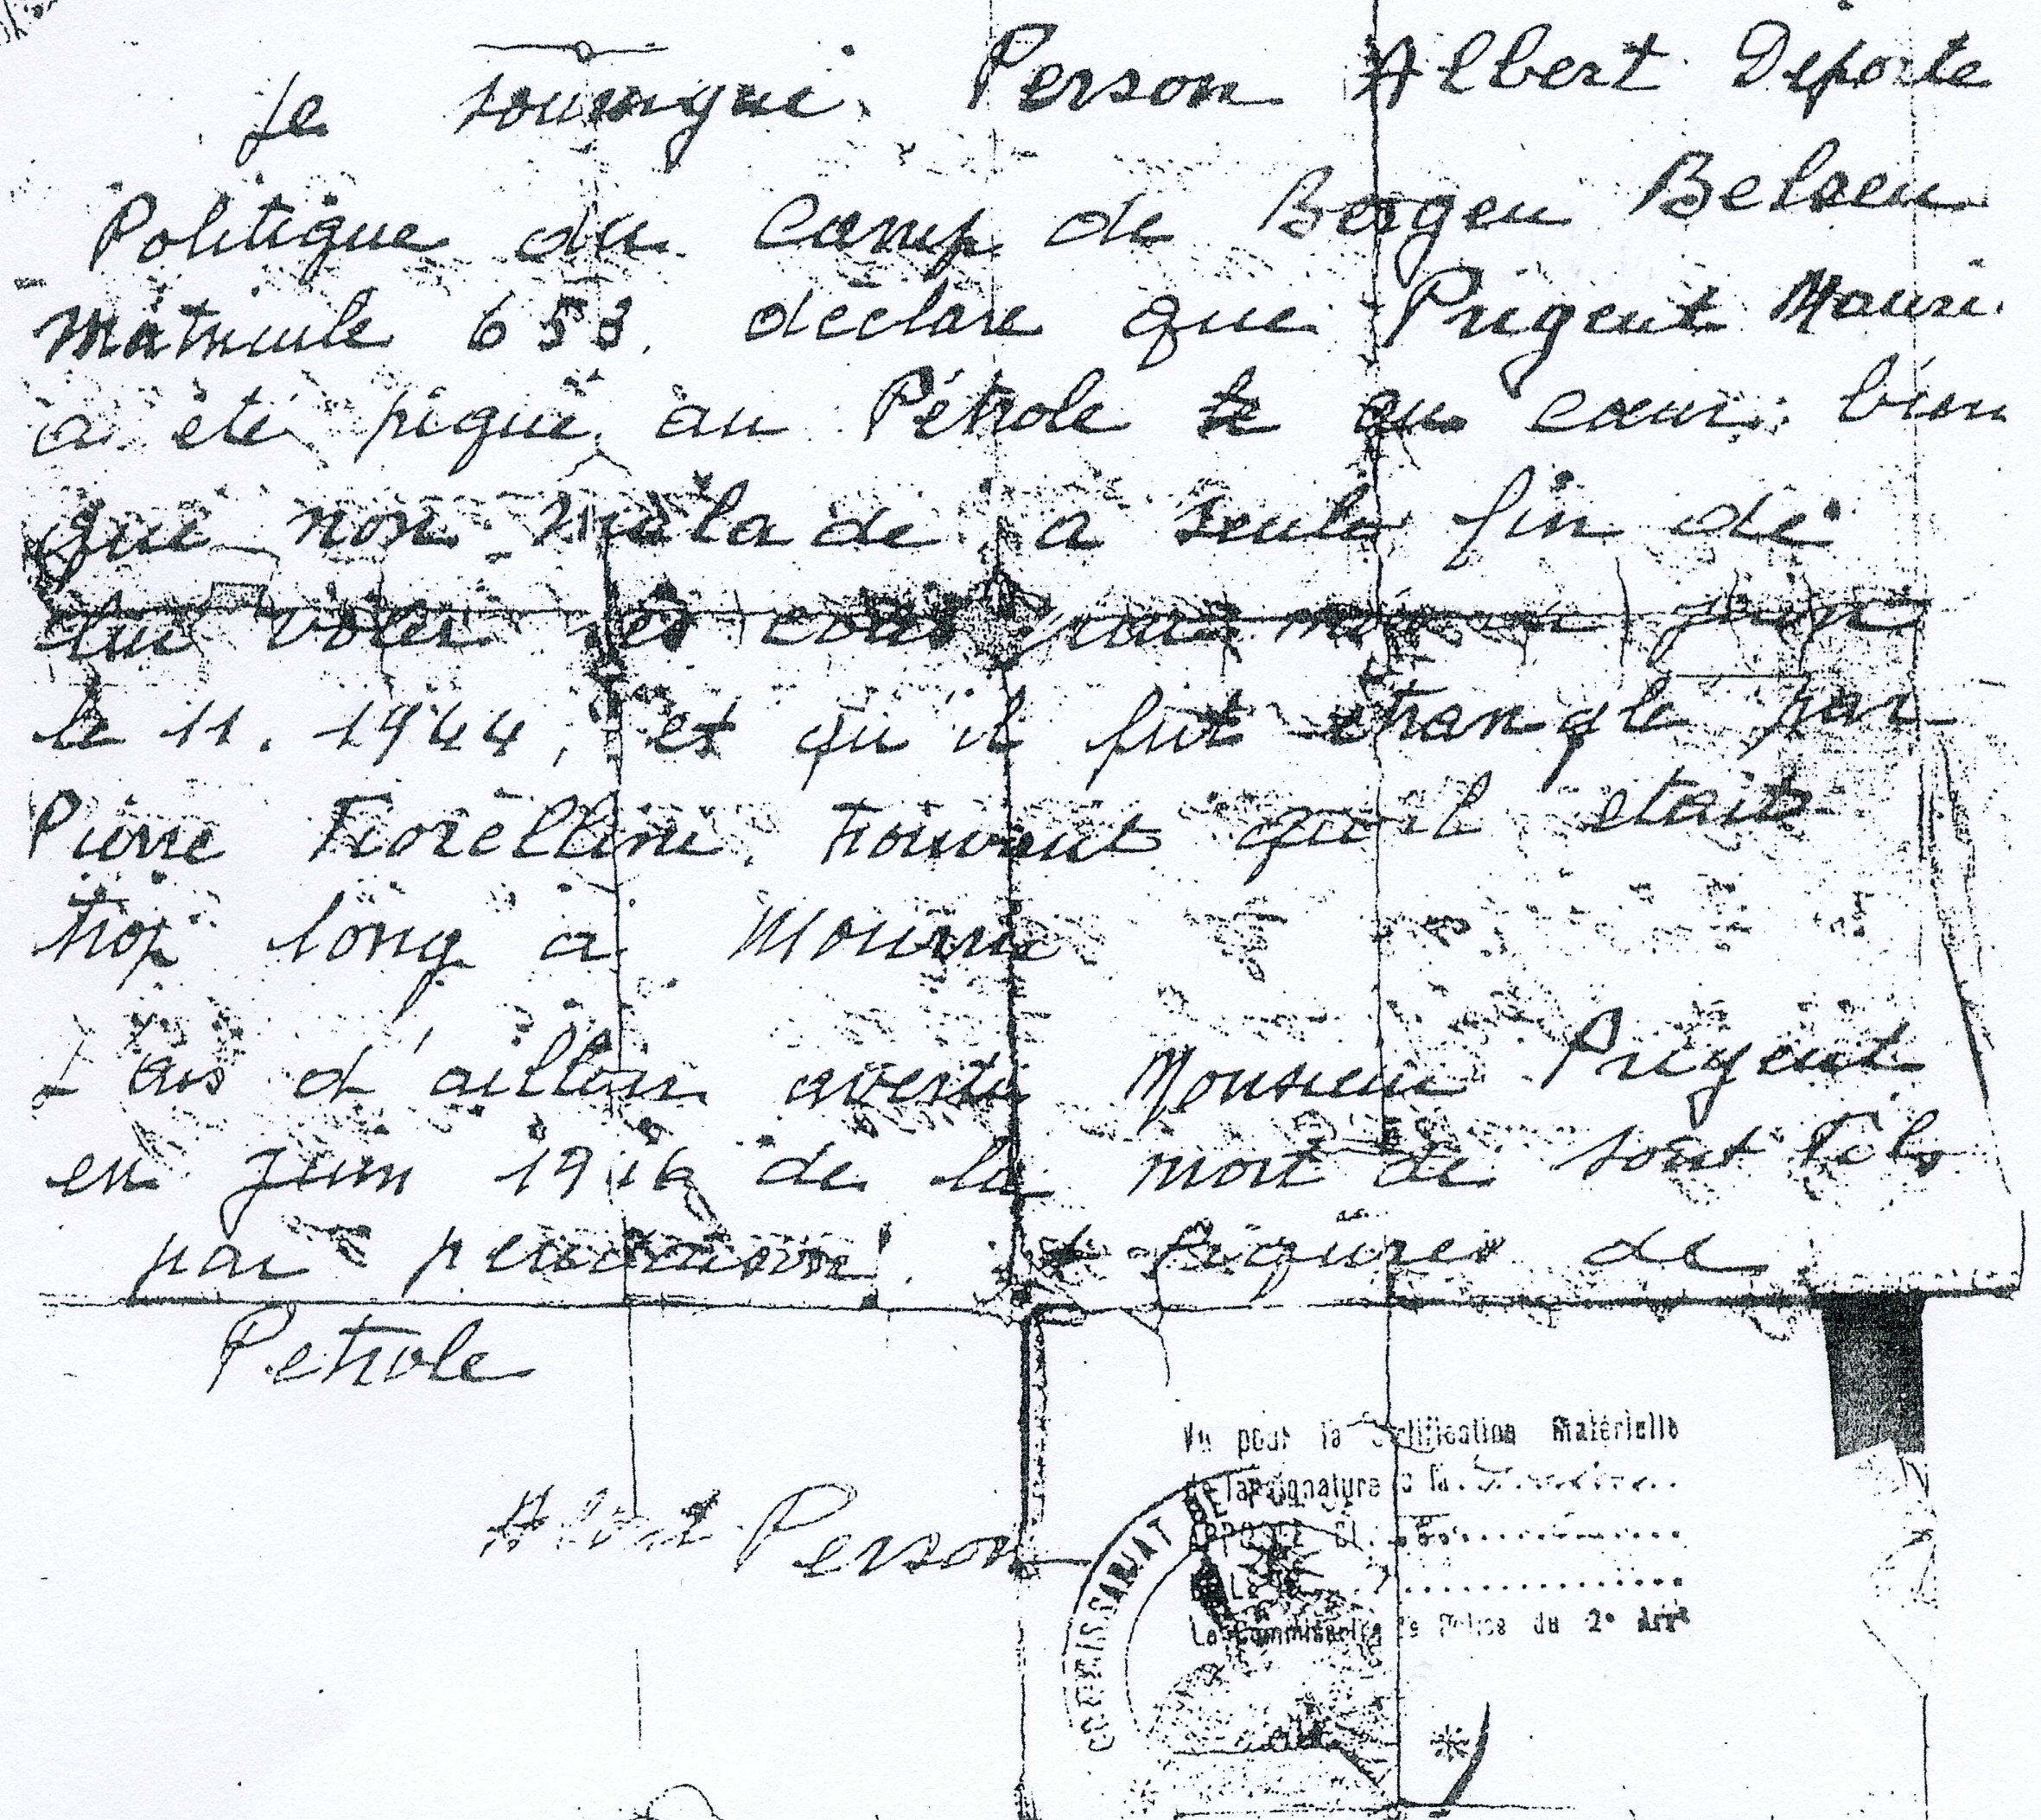 Je soussigné. Person Albert Déporté
Politique du Camp de Bergen Belsen
Matricule 653. déclare que Prigent Mauri
a été piqué au Pétrole au cœur, bien
que non malade, a seule fin de
lui voler ses colis
le 11. 1944, et qu'il fut étranglé par
Pierre Fiorellini. trouvant qu'il etait
trop long à Mourir
d'ailleurs averti Monsieur Prigent
en Juin 19 de la mort de sont Fils
par piqures de
Petrole
Albert Person
Vu pour la Certification Matérielle
de la signature de
APPOSÉE CI.
Le Commissaire de Police du 2e Arrt
COMMISSARIAT DE